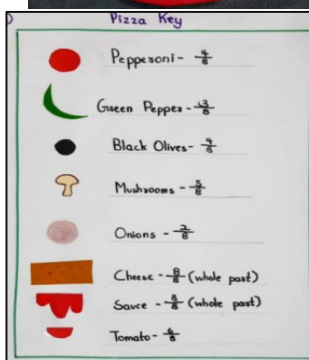 Pizza Key
Pepperoni- 4/8
Green Pepper- 3/8
Black Olives- 4/8
Mushrooms- 5/8
Onions- 2/8
Cheese - 8/8 (whole part)
Sauce - 8/8 (whole part)
Tomato- 4/8